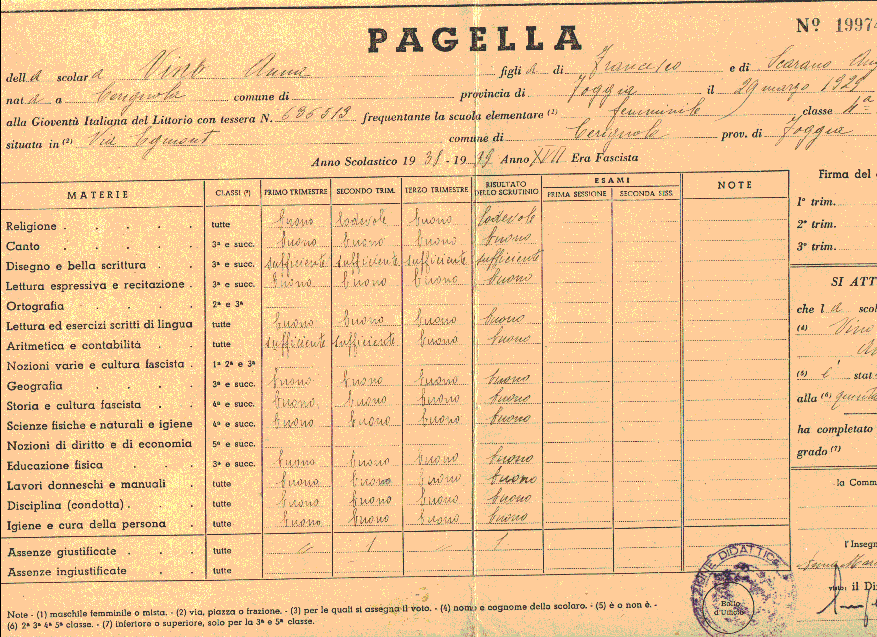 PAGELLA
Nº 1997
dell a scolar a Vino Anna figli a di Francesco e di Scarano
nat a a Cerignola comune di provincia di Foggia il 29 marzo 192
alla Gioventù Italiana del Littorio con tessera N. 636513 frequentante la scuola elementare (2) femminile classe 4ª
situata in (2) Via Egmont comune di Cerignola prov. di Foggia
Anno Scolastico 19 38 - 19 39 Anno XVII Era Fascista
MATERIE CLASSI (3) PRIMO TRIMESTRE SECONDO TRIM. TERZO TRIMESTRE RISULTATO DELLO SCRUTINIO ESAMI PRIMA SESSIONE SECONDA SESS. NOTE
Religione tutte buono lodevole buono lodevole
Canto 3ª e succ. buono buono buono buono
Disegno e bella scrittura 3ª e succ. sufficiente sufficiente sufficiente sufficiente
Lettura espressiva e recitazione 3ª e succ. buono buono buono buono
Ortografia 2ª e 3ª
Lettura ed esercizi scritti di lingua tutte buono buono buono buono
Aritmetica e contabilità tutte sufficiente sufficiente buono buono
Nozioni varie e cultura fascista 1ª 2ª e 3ª
Geografia 3ª e succ. buono buono buono buono
Storia e cultura fascista 4ª e succ. buono buono buono buono
Scienze fisiche e naturali e igiene 4ª e succ. buono buono buono buono
Nozioni di diritto e di economia 5ª e succ.
Educazione fisica 3ª e succ. buono buono buono buono
Lavori donneschi e manuali tutte buono buono buono buono
Disciplina (condotta) tutte buono buono buono buono
Igiene e cura della persona tutte buono buono buono buono
Assenze giustificate tutte " 1 " 1
Assenze ingiustificate tutte
Note - (1) maschile femminile o mista. - (2) via, piazza o frazione. - (3) per le quali si assegna il voto. - (4) nome e cognome dello scolaro. - (5) è o non è. -
(6) 2ª 3ª 4ª 5ª classe. - (7) inferiore o superiore, solo per la 3ª e 5ª classe.
Firma del
1º trim.
2º trim.
3º trim.
SI ATT
che l a scol
(4) Vino
(5) è stat
alla (6) quinta
ha completato
grado (7)
la Comm
l'Insegn
visto: il Di
ZIONE DIDATTICA
Bollo
d'Ufficio